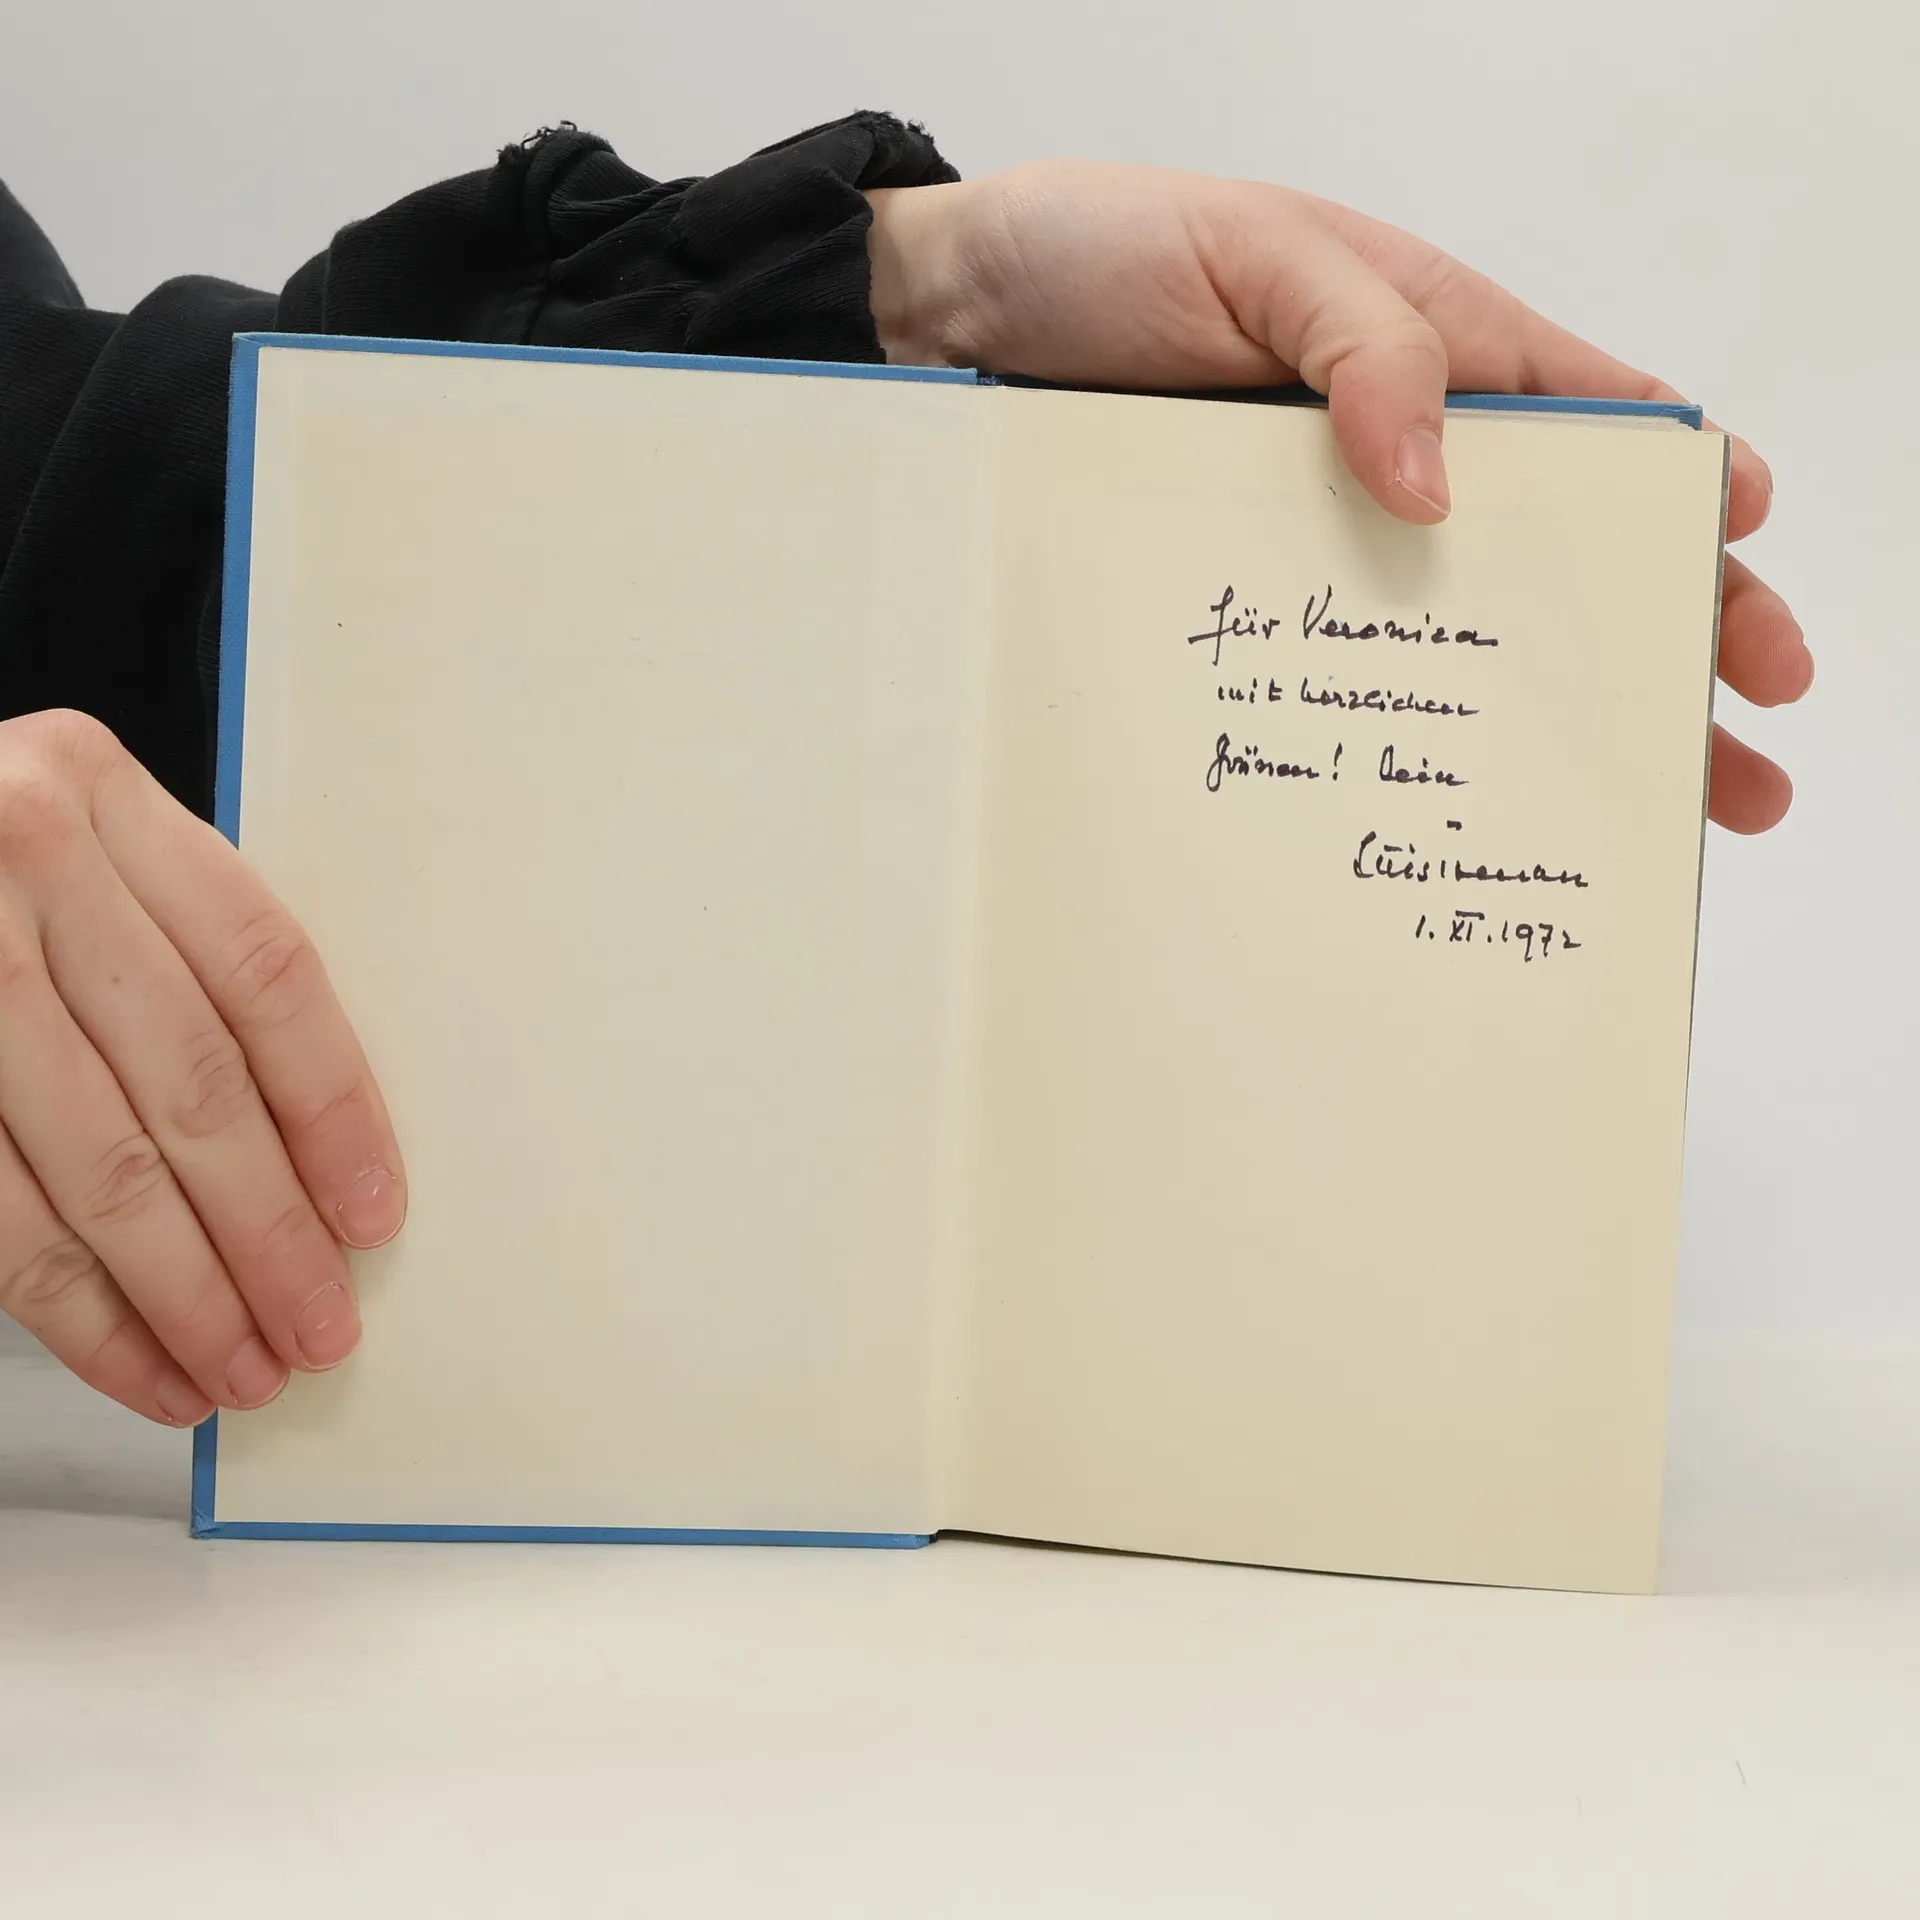 für Veronica
mit herzlichen
Grüssen! Dein
1. XI. 1972